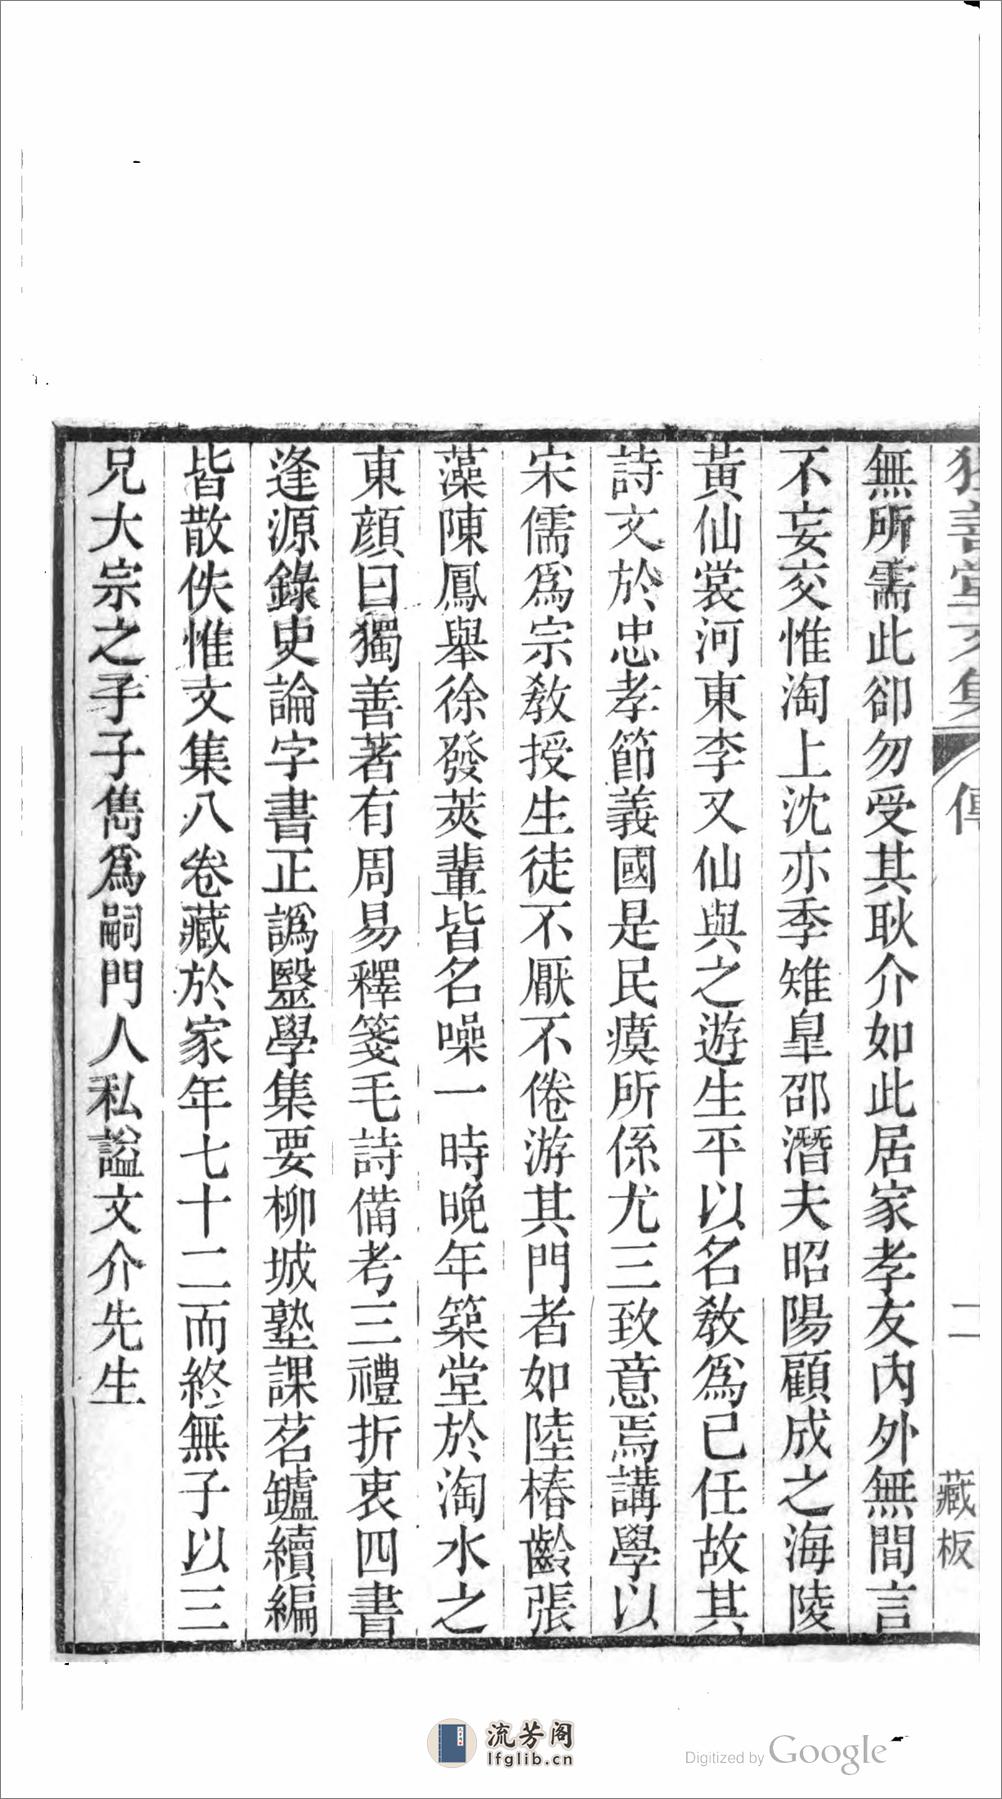 獨善堂文集
傳
二
藏板
無所需此卻勿受其耿介如此居家孝友內外無間言
不妄交惟淘上沈亦季雉皐邵潛夫昭陽顧成之海陵
黃仙裳河東李又仙與之遊生平以名敎爲已任故其
詩文於忠孝節義國是民瘼所係尤三致意焉講學以
宋儒爲宗敎授生徒不厭不倦游其門者如陸椿齡張
藻陳鳳舉徐發莢輩皆名噪一時晚年築堂於淘水之
東顔曰獨善著有周易釋箋毛詩備考三禮折衷四書
逢源錄史論字書正譌毉學集要柳城塾課茗鑪續編
皆散佚惟文集八卷藏於家年七十二而終無子以三
兄大宗之子子雋爲嗣門人私謚文介先生
流芳阁
lfglib.cn
Digitized by Google